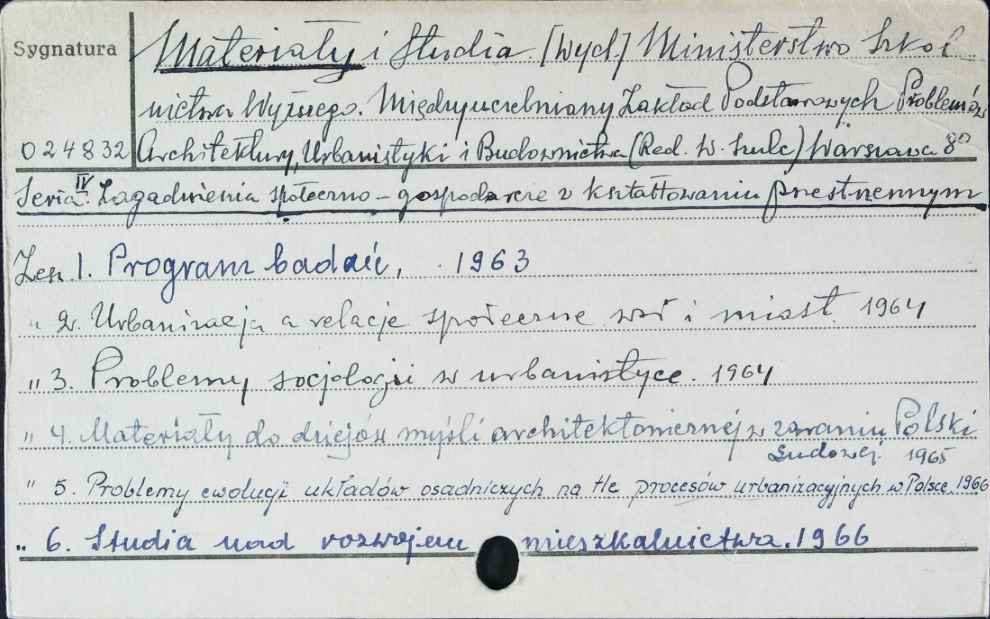 Sygnatura
Materiały i Studia. [Wyd] Ministerstwo Szkol
nictwa Wyższego. Międzyuczelniany Zakład Podstawowych Problemów
024832 Architektury, Urbanistyki i Budownictwa (Red. W. Szulc) Warszawa 8º
Seria IV. Zagadnienia społeczno-gospodarcze w kształtowaniu przestrzennym
Zesz. 1. Program badań, 1963
" 2. Urbanizacja a relacje społeczne wsi i miast. 1964
" 3. Problemy socjologii w urbanistyce. 1964
" 4. Materiały do dziejów myśli architektonicznej w zaraniu Polski
Ludowej. 1965
" 5. Problemy ewolucji układów osadniczych na tle procesów urbanizacyjnych w Polsce. 1966
" 6. Studia nad rozwojem mieszkalnictwa. 1966